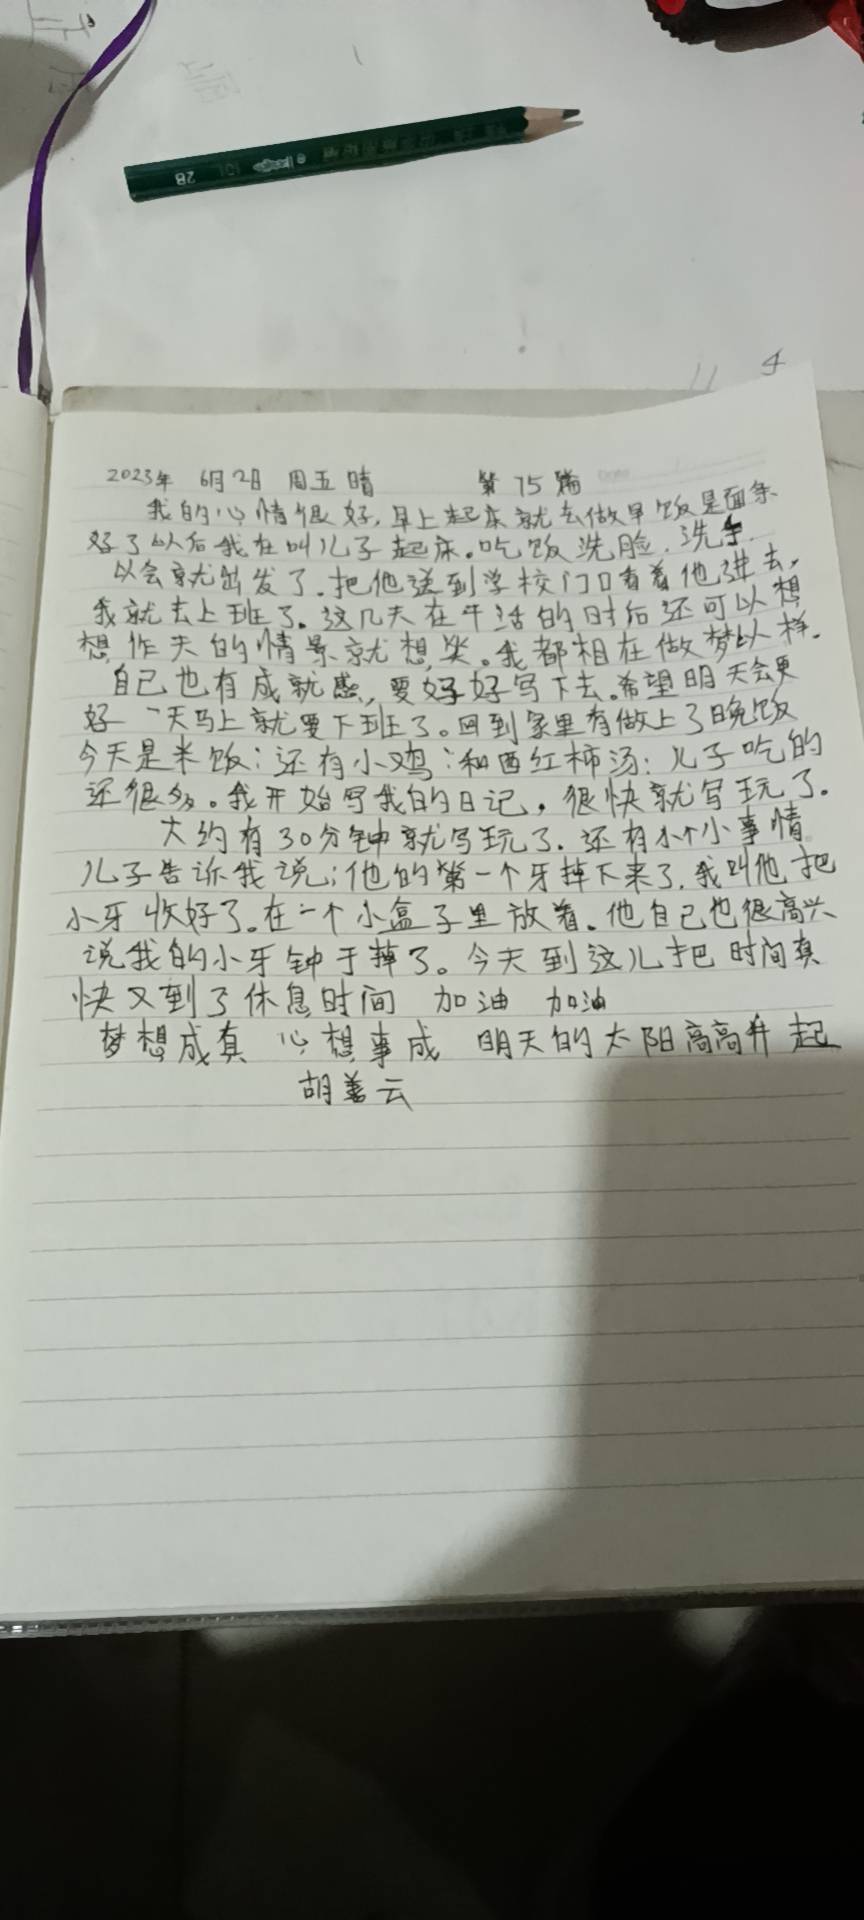 2B
2023年 6月2日 周五 晴 第75篇
我的心情很好,早上起床就去做早饭是面条
好了以后我在叫儿子起床。吃饭洗脸.洗手.
以会就出发了.把他送到学校门口看着他进去,
我就去上班了。这几天在干活的时后还可以想
想作天的情景就想笑。我都相在做梦以样.
自己也有成就感,要好好写下去。希望明天会更
好 一天马上就要下班了。回到家里有做上了晚饭
今天是米饭;还有小鸡;和西红柿汤;儿子吃的
还很多。我开始写我的日记,很快就写玩了.
大约有30分钟就写玩了.还有小个小事情
儿子告诉我说;他的第一个牙掉下来了.我叫他把
小牙收好了。在一个小盒子里放着。他自己也很高兴
说我的小牙钟于掉了。今天到这儿把 时间真
快又到了休息时间 加油 加油
梦想成真 心想事成 明天的太阳高高升起
胡善云